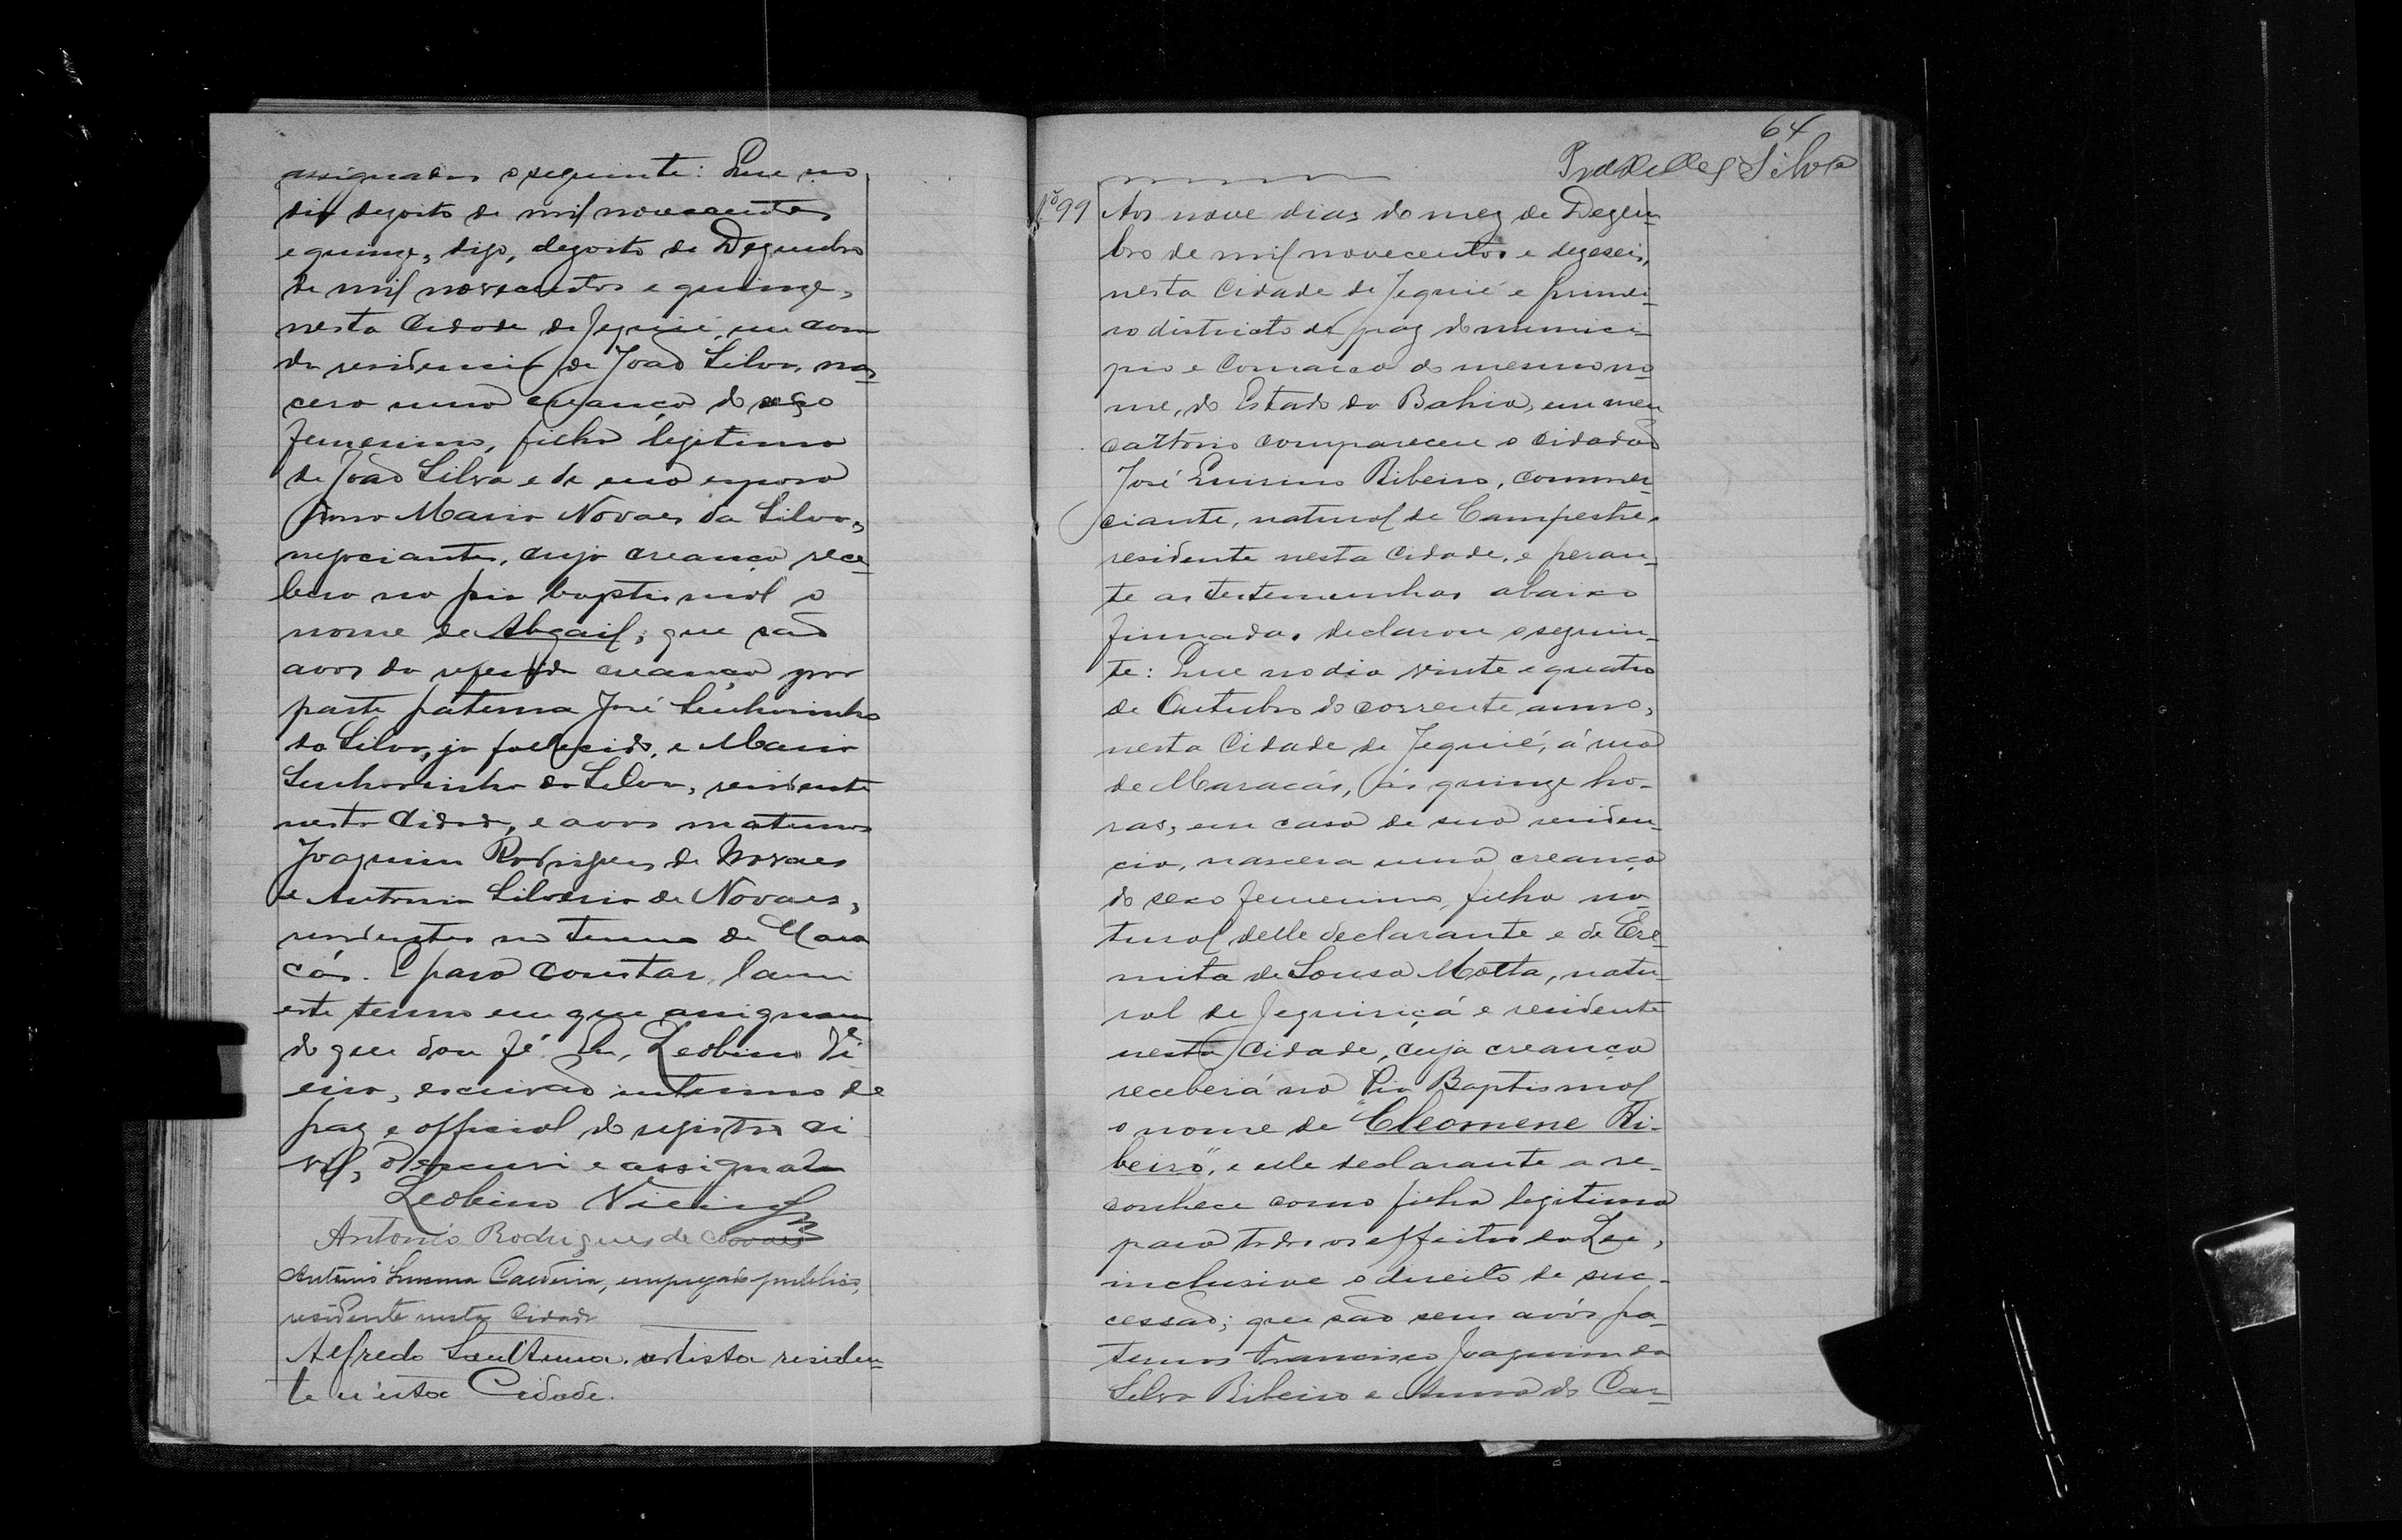 assignadas o seguinte: Que no
dia dezoito de mil novecentos
e quinze, digo, dezoito de Dezembro
de mil novecentos e quinze,
nesta Cidade de Jequié, em casa
da residencia de João Silva, nas-
cera uma creança do sexo
femenino, filha legitima
de João Silva e de sua esposa
Maria Novaes da Silva,
negociante, cuja creança rece-
bera na pia baptismal o
nome de Abgail; que são
avos da referida creança por
parte paterna José Senhorinho
da Silva, ja fallecido, e Maria
Senhorinha da Silva, residente
nesta Cidade, e avos maternos
Joaquim Rodrigues de Novaes
e Antonia Silveria de Novaes,
residentes no termo de Mara
cás. E para constar, lavrei
este termo em que assignam
do que dou fé. Eu, Leobino Vi
eira, escrivão interino de
paz e official do registro ci
vil, o escrevi e assignato
Leobino Vieira
Antonio Rodrigues de Novaes
Antonio Caldeira, empregado publico,
residente nesta Cidade
Alfredo Sant'Anna. artista residen-
te n'esta Cidade.
64
Silva
Nº 99
Aos nove dias do mez de Dezem-
bro de mil novecentos e dezeseis,
nesta Cidade de Jequié e primei-
ro districto de paz do munici-
pio e Comarca do mesmo no-
me, do Estado da Bahia, em meu
cartorio compareceu o cidadão
José Ribeiro, commer-
ciante, natural de Campestre,
residente nesta Cidade, e peran-
te as testemunhas abaixo
firmadas declarou o seguin-
te: Que no dia vinte e quatro
de Outubro do corrente anno,
nesta Cidade de Jequié, á rua
de Maracás, ás quinze ho-
ras, em casa de sua residen-
cia, nascera uma creança
do sexo femenino, filha na-
tural delle declarante e de Ere-
mita de Sousa Motta, natu-
ral de Jequiriçá e residente
nesta Cidade, cuja creança
receberá na Pia Baptismal
o nome de "Cleomene Ri-
beiro", e elle declarante a re-
conhece como filha legitima
para todos os effeitos da Lei,
inclusive o direito de suc-
cessão; que são seus avós pa-
ternos Francisco Joaquim da
Silva Ribeiro e Anna do Car-